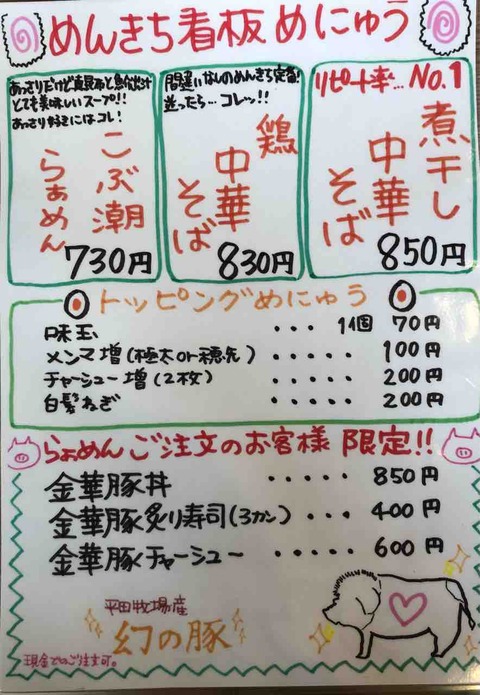 めんきち看板めにゅう
あっさりだけど真昆布と魚介出汁
とても美味しいスープ!!
あっさり好きにはコレ!
こぶ潮
らぁめん
730円
間違いなしのめんきち定番!
迷ったら…コレッ!!
鶏
中華
そば
830円
リピート率…No.1
煮干し
中華
そば
850円
トッピングめにゅう
味玉 ・・・ 1個 70円
メンマ増(極太or穂先) ・・・・・ 100円
チャーシュー増(2枚) ・・・・・ 200円
白髪ねぎ ・・・・・ 200円
らぁめんご注文のお客様 限定!!
金華豚丼 ・・・・・ 850円
金華豚炙り寿司(3カン) ・・・・ 400円
金華豚チャーシュー ・・・・・ 600円
平田牧場産
幻の豚
現金でのご注文可。